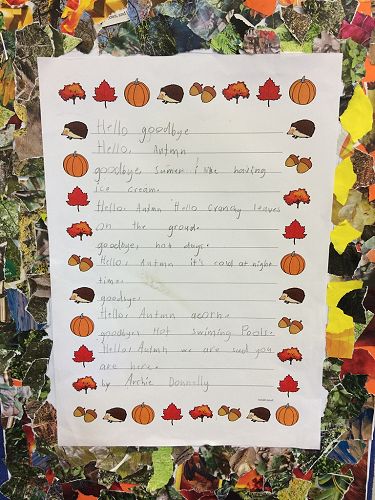 Hello goodbye
Hello, Autmn
goodbye, Sumer i like having
Ice cream.
Hello, Autmn Hello Crancy leaves
on the groud.
goodbye, hot days.
Hello, Autmn it's cold at night
time.
goodbye.
Hello, Autmn acorn.
goodbye, Hot swiming Pools.
Hello, Autmn we are sad you
are here.
by Archie Donnolly